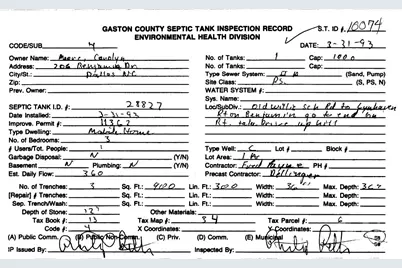 GASTON COUNTY SEPTIC TANK INSPECTION RECORD S.T. ID #: 10074
ENVIRONMENTAL HEALTH DIVISION
CODE/SUB 4 DATE: 3-31-93
Owner Name: Pierce, Carolyn No. of Tanks: 1 Cap: 1000
Address: 206 Benjamin Dr. No. of Tanks: Cap:
City/St.: Dallas NC Type Sewer System: (Sand, Pump)
Zip: Site Class: PS. (S, PS, N)
Prev. Owner: WATER SYSTEM #:
Sys. Name:
SEPTIC TANK I.D. #: 28827 Loc/Sub/Div.: Old Willis Sch Rd to
Date Installed: 3-31-93 Rt on Benjamin go to end on
Improv. Permit #: 11367 Rt. take Drive up hill
Type Dwelling: Mobile Home
No. of Bedrooms: 3
# Users/Tot. People: Type Well: C Lot #: Block #:
Garbage Disposal: N (Y/N) Lot Area: 1 Ac
Basement: N Plumbing: N (Y/N) Contractor: Fred PH #
Est. Daily Flow: 360 Precast Contractor:
No. of Trenches: 3 Sq. Ft.: 900 Lin. Ft.: 300 Width: 36" Max. Depth: 36"
[Repair] # Trenches: Sq. Ft.: Lin. Ft.: Width: Max. Depth:
Sep. Trench/Wash: Sq. Ft.: Lin. Ft.: Width: Max. Depth:
Depth of Stone: 12" Other Materials:
Tax Book #: 13 Tax Map #: 34 Tax Parcel #: 6
Code #: 4 X Coordinates: Y Coordinates:
(A) Public Comm. (B) Public Non-Comm. (C) Priv. (D) Comm. (E) Municipal
IP Issued By: Inspected By: